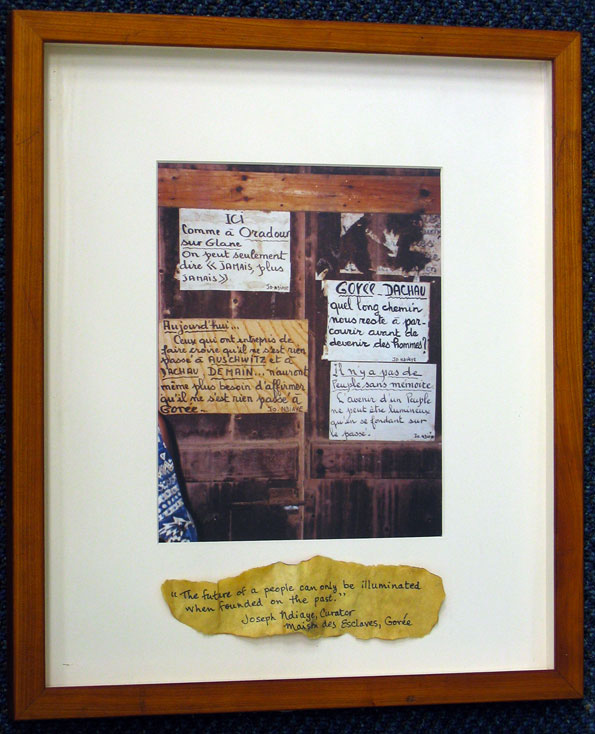 ICI
Comme à Oradour
sur Glane
On peut seulement
dire << JAMAIS, plus
JAMAIS >>
JO. NDIAYE
GORÉE_DACHAU
quel long chemin
nous reste à par-
courir avant de
devenir des hommes?
JO. NDIAYE
Aujourd'hui...
Ceux qui ont entrepris de
faire croire qu'il ne s'est rien
passé à AUSCHWITZ et à
DACHAU DEMAIN... n'auront
même plus besoin d'affirmer
qu'il ne s'est rien passé à
Gorée.
JO. NDIAYE
Il n'y a pas de
Peuple sans mémoire
L'avenir d'un Peuple
ne peut être lumineux
qu'en se fondant sur
le passé.
JO. NDIAYE
"The future of a people can only be illuminated
when founded on the past."
Joseph Ndiaye, Curator
Maison des Esclaves, Gorée